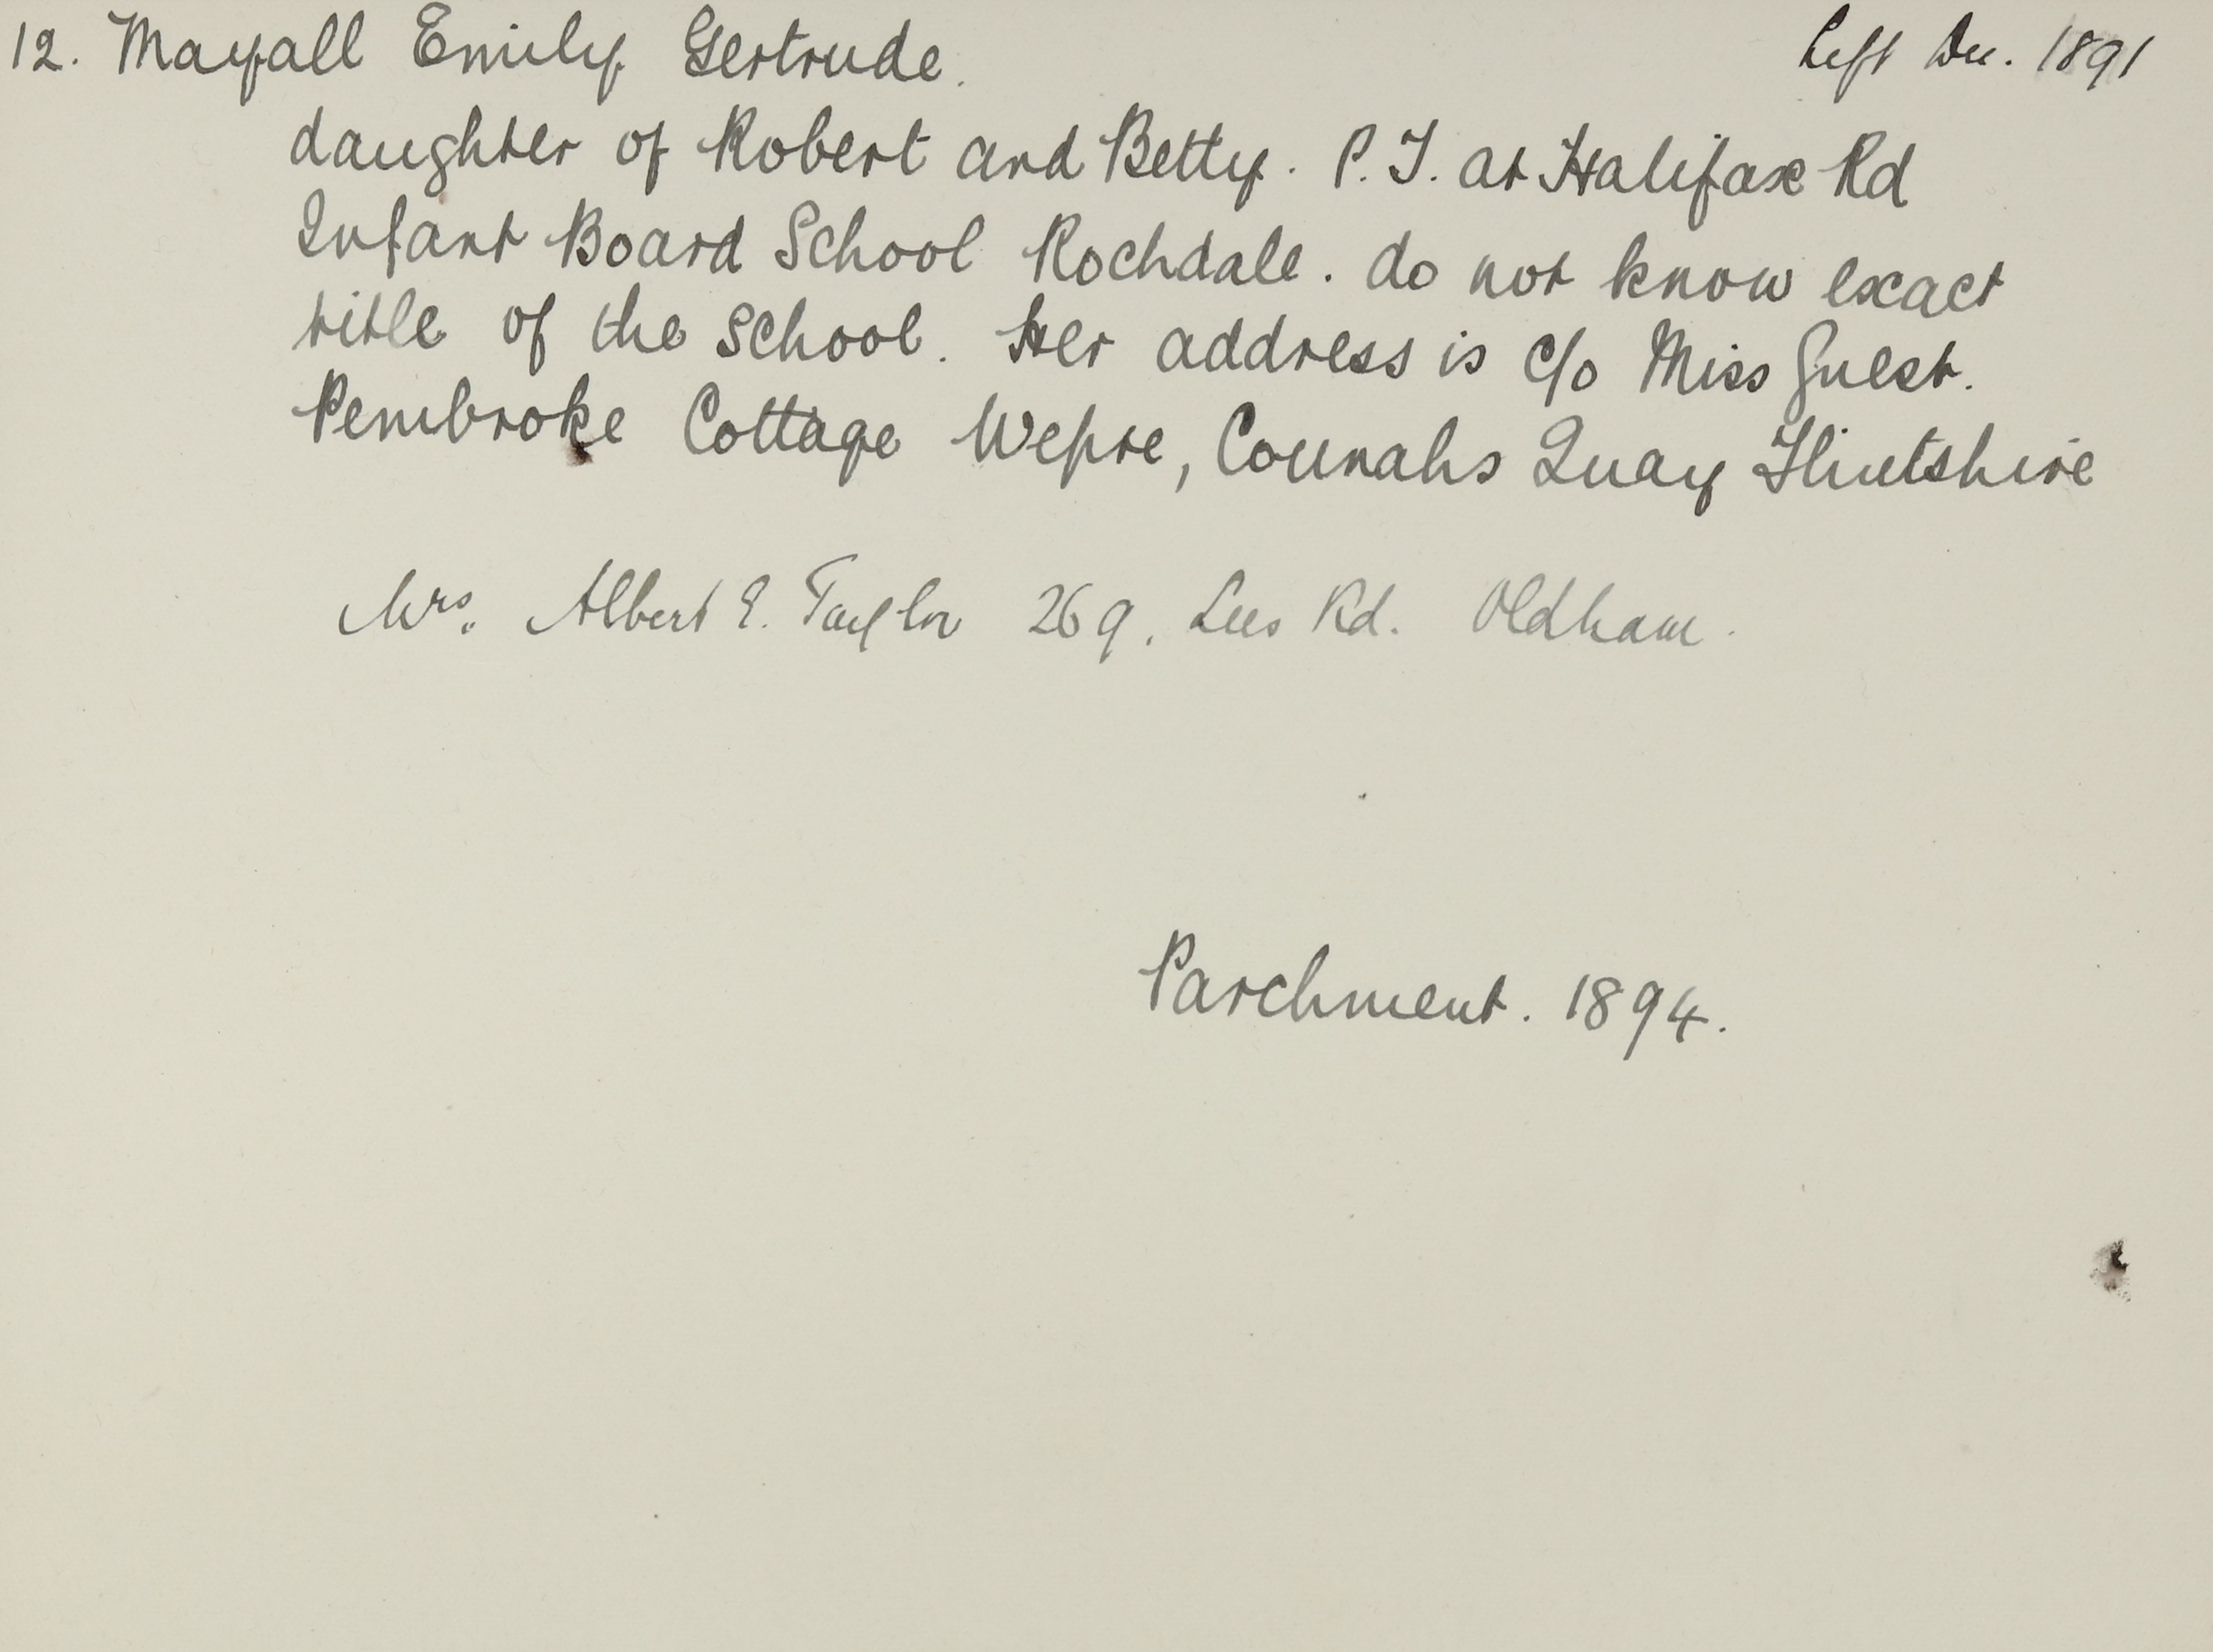 12. Mayall Emily Gertrude. left Dec. 1891
daughter of Robert and Betty. P.T. at Halifax Rd
Infant Board School Rochdale. do not know exact
title of the School. Her address is c/o Miss Guest.
Pembroke Cottage Wepre, Connahs Quay Flintshire
Mrs. Albert E. Taylor 269, Lees Rd. Oldham.
Parchment. 1894.